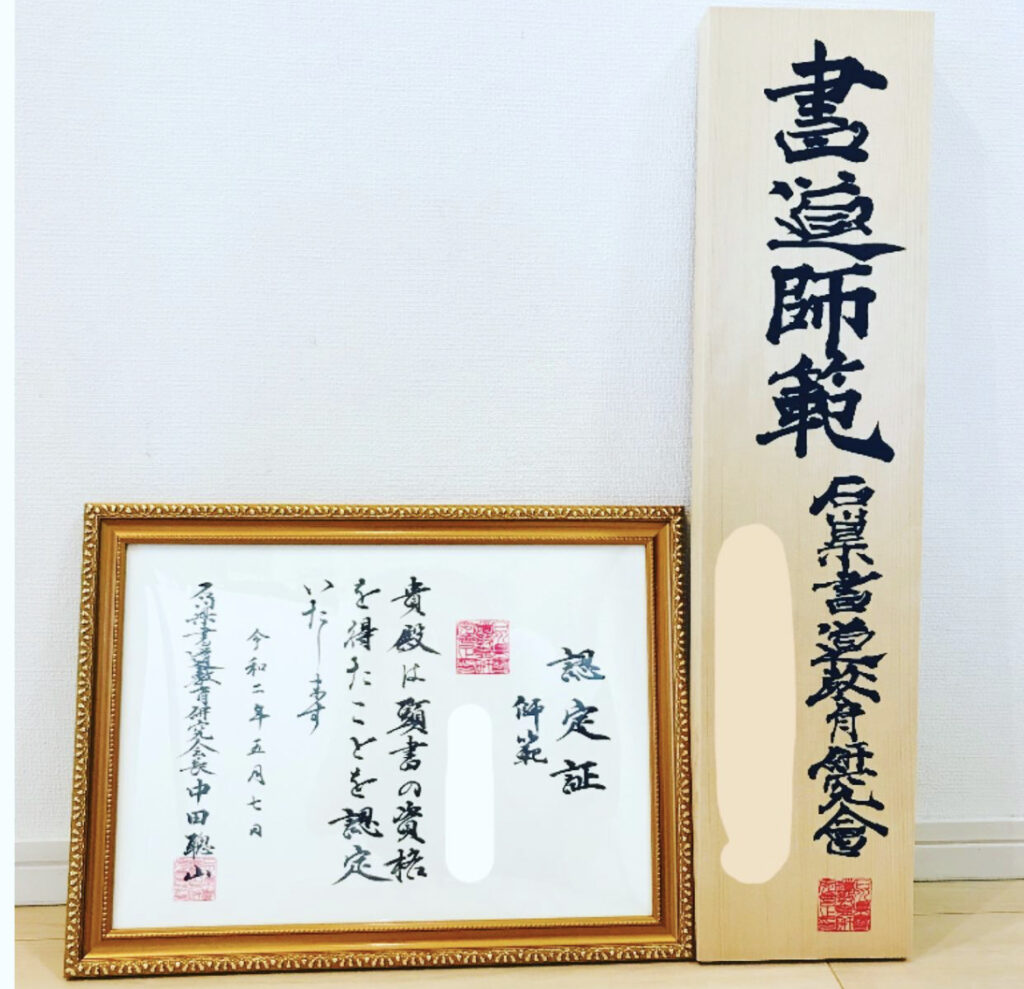 書道師範
石巣書道教育研究會
認定証
師範
貴殿は頭書の資格
を得たことを認定
いたします
令和二年五月七日
石巣書道教育研究会長 中田聡山